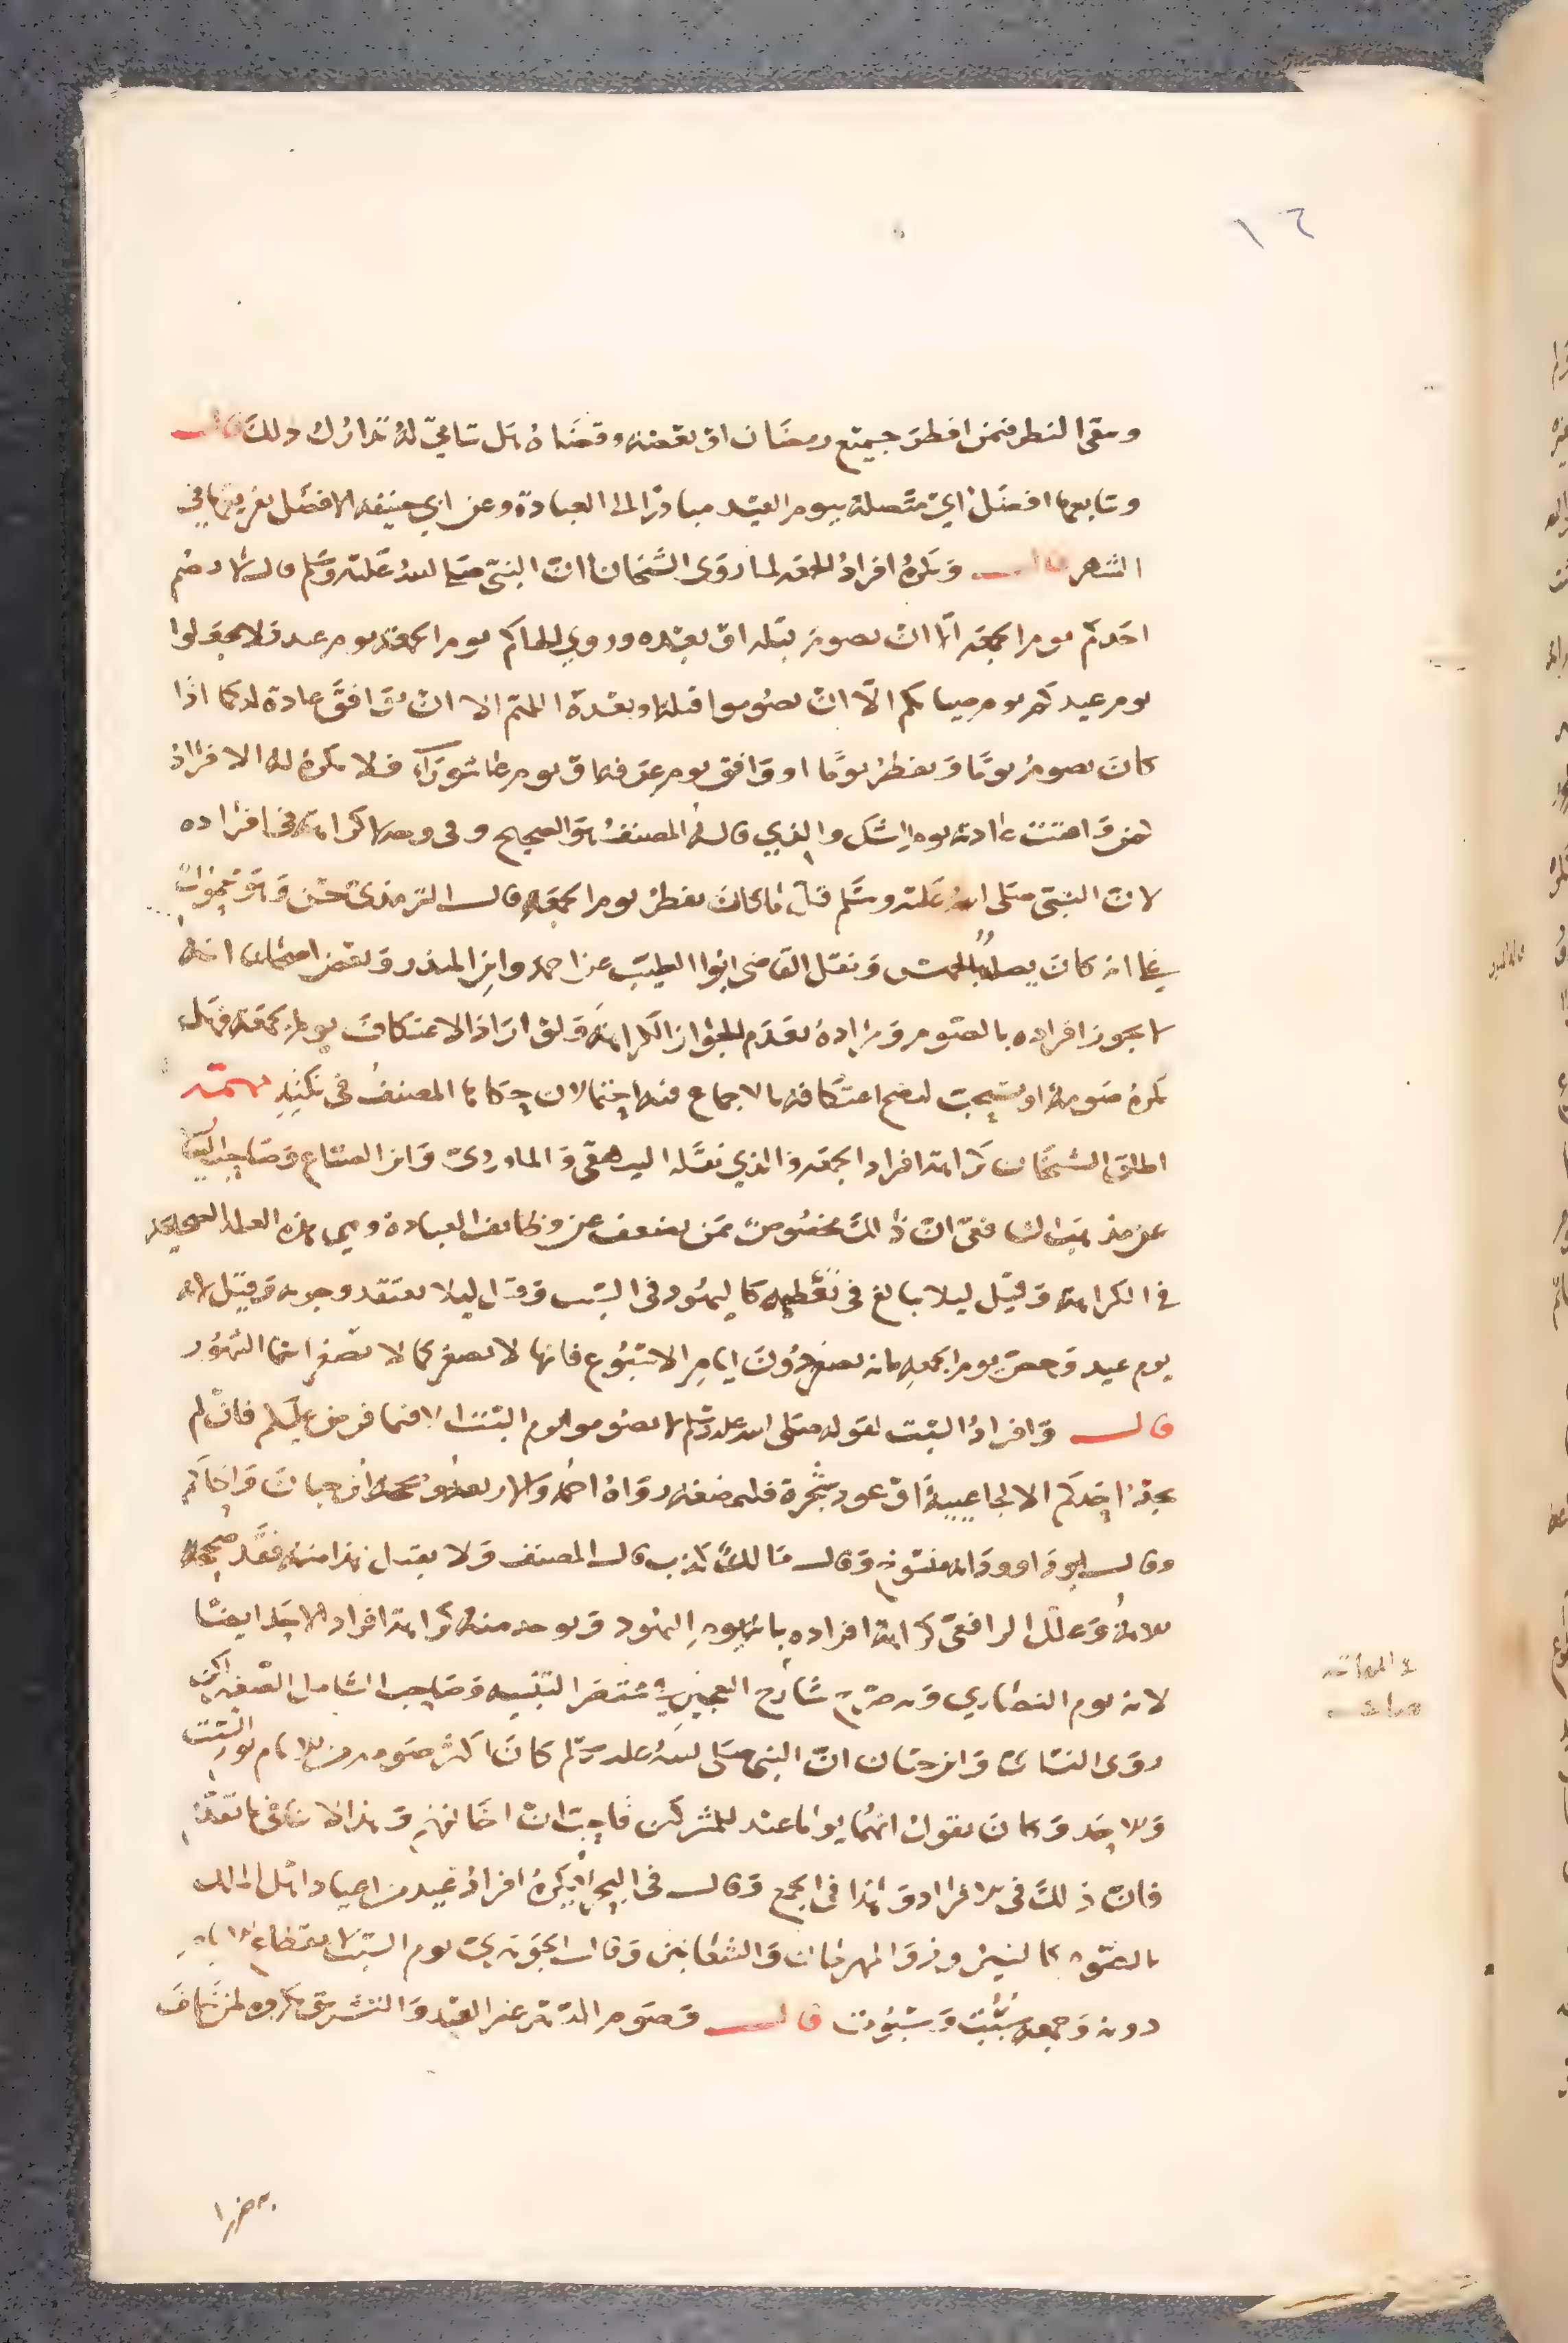 ١٦
ويبقى النظر فيمن افطر جميع رمضان او بعضه وقضاه هل يتأتى له تدارك ذلك قال
وتتابعها افضل اي متصلة بيوم العيد مبادرة الى العبادة وعن ابي حنيفة الافضل تفريقها في
الشهر قال ويكره افراد الجمعة لما روى الشيخان ان النبي صلى الله عليه وسلم قال لا يصم
احدكم يوم الجمعة الا ان يصوم قبله او بعده وروى الحاكم يوم الجمعة يوم عيد فلا تجعلوا
يوم عيدكم يوم صيامكم الا ان تصوموا قبله او بعده اللهم الا ان يوافق عادة له كما اذا
كان يصوم يوما ويفطر يوما او وافق يوم عرفة او يوم عاشوراء فلا يكره له الافراد
لمن وافقت عادته يوم الشك والذي قاله المصنف هو الصحيح وفي وجه لا كراهة في افراده
لان النبي صلى الله عليه وسلم قل ما كان يفطر يوم الجمعة قال الترمذي حسن وهو محمول
على انه كان يصله بالخميس ونقل القاضي ابوا الطيب عن احمد وابن المنذر وبعض اصحابنا انه
لا يجوز افراده بالصوم ومراده بعدم الجواز الكراهة ولو اراد الاعتكاف يوم الجمعة فهل
يكره صومه او يستحب ليصح اعتكافه بالاجماع فيه احتمالان حكاهما المصنف في نكته مهمة
اطلق الشيخان كراهة افراد الجمعة والذي نقله البيهقي والماوردي وابن الصباغ وصاحب البيان
عن مذهب الشافعي ان ذلك مخصوص بمن يضعف عن وظائف العبادة وهي هذه العلة الصحيحة
في الكراهة وقيل ليلا يبالغ في تعظيمه كاليهود في السبت وقيل ليلا يعتقد وجوبه وقيل لانه
يوم عيد وخص يوم الجمعة بانه يصغر دون ايام الاسبوع فانها لا تصغر كما لا تصغر اسما الشهور
قال وافراد السبت لقوله صلى الله عليه وسلم لا تصوموا يوم السبت الا فيما فرض عليكم فان لم
يجد احدكم الا لحا عنبة او عود شجرة فليمضغه رواه احمد والاربعة وصححه ابن حبان والحاكم
وقال ابو داوود انه منسوخ وقال مالك كذب قال المصنف ولا يقبل هذا منه فقد صححه
الائمة وعلل الرافعي كراهة افراده بانه يوم اليهود ويوخذ منه كراهة افراد الاحد ايضا
لانه يوم النصارى وبه صرح شارح التعجيز في مختصر التنبيه وصاحب الشامل الصغير لكن
روى النسائي وابن حبان ان النبي صلى الله عليه وسلم كان اكثر صومه من الايام يوم السبت
والاحد وكان يقول انهما يوما عيد للمشركين فاحببت ان اخالفهم وهذا لا ينافي ما تقدم
فان ذلك في الافراد وهذا في الجمع وقال في البحر يكره افراد عيد من اعياد اهل الملل
بالصوم كالنيروز والمهرجان والشعانين وقال الجوهري يوم السبت لانقطاع الايام
دونه وجمعه سبت وسبوت قال وصوم الدهر غير العيد والتشريق مكروه لمن خاف
به ضررا